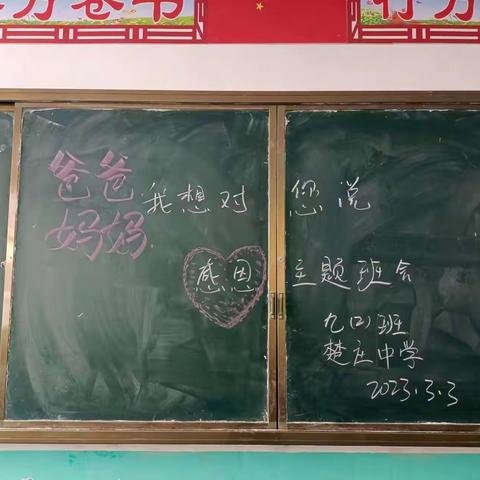 万卷书
行万
爸爸
妈妈 我想对您说
感恩 主题班会
九(2)班
楚庄中学
2023.3.3